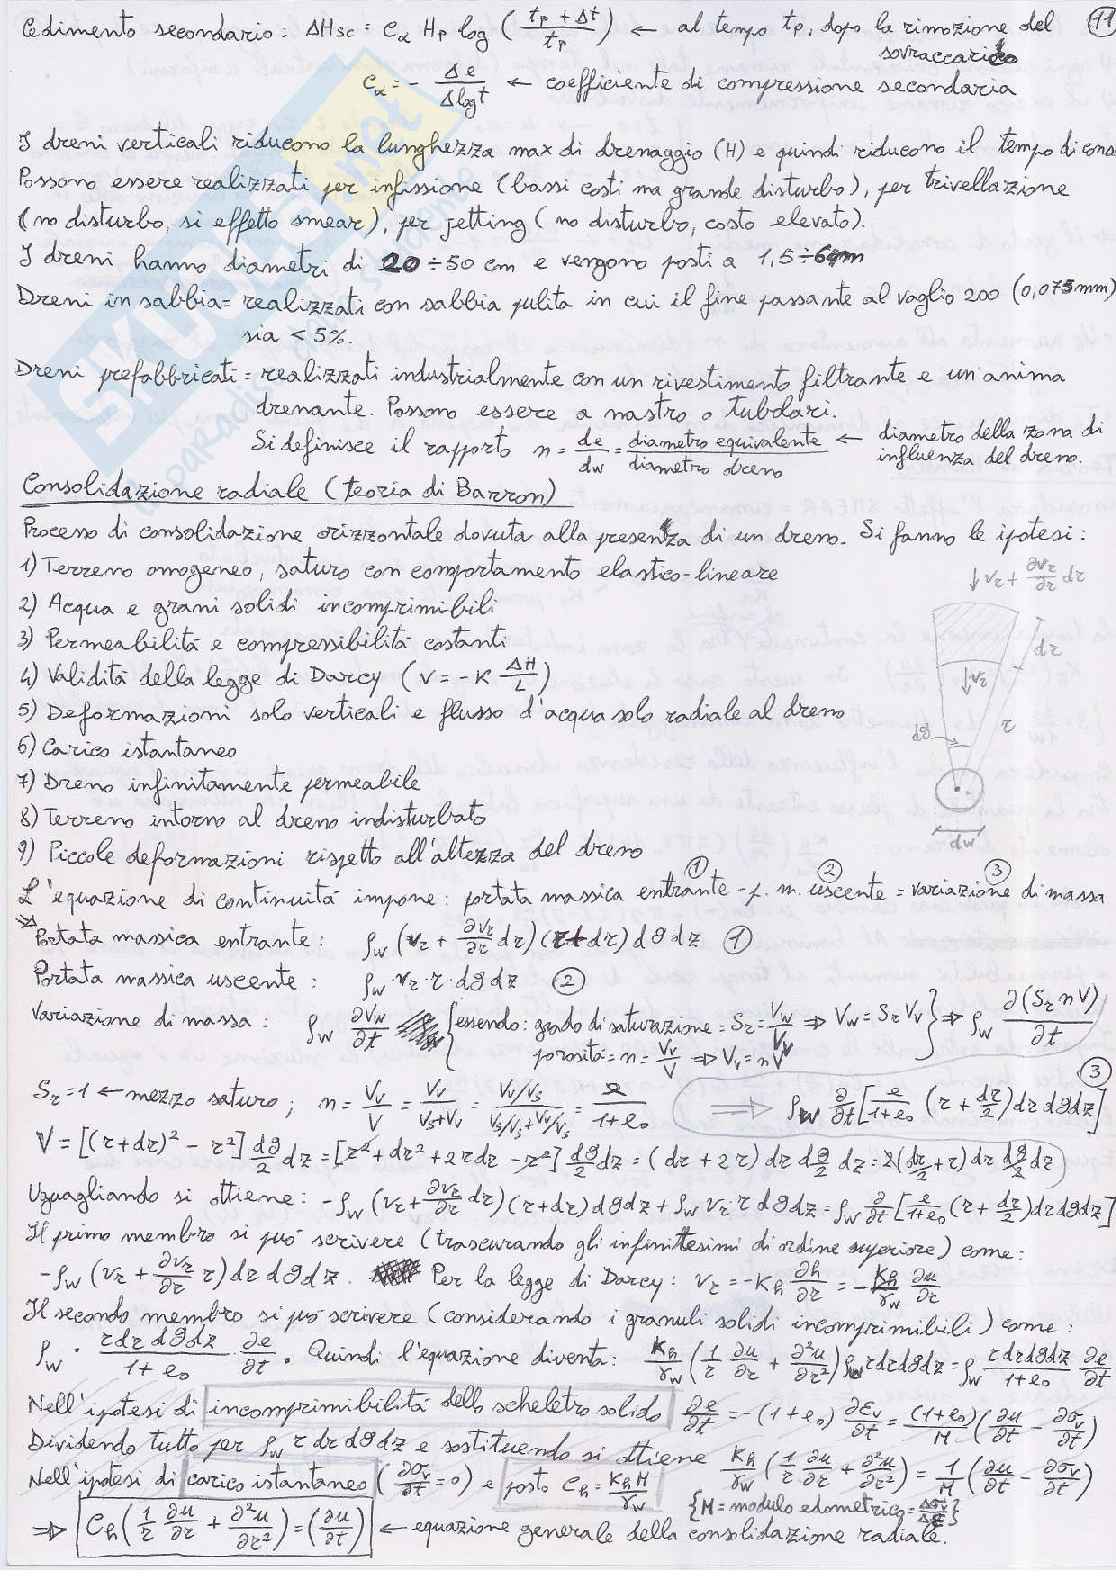 11
Cedimento secondario: ΔHsc = Cα Hp log ( (tp + Δt) / tp ) ← al tempo tp, dopo la rimozione del
sovraccarico
Cα = - Δe / Δlogt ← coefficiente di compressione secondaria
I dreni verticali riducono la lunghezza max di drenaggio (H) e quindi riducono il tempo di cons
Possono essere realizzati per infissione (bassi costi ma grande disturbo), per trivellazione
(no disturbo, si effetto smear), per jetting (no disturbo, costo elevato).
I dreni hanno diametri di 20÷50 cm e vengono posti a 1,5÷6m
Dreni in sabbia = realizzati con sabbia pulita in cui il fine passante al vaglio 200 (0,075mm)
sia < 5%.
Dreni prefabbricati = realizzati industrialmente con un rivestimento filtrante e un'anima
drenante. Possono essere a nastro o tubolari.
Si definisce il rapporto n = de/dw = diametro equivalente / diametro dreno ← diametro della zona di
influenza del dreno.
Consolidazione radiale (teoria di Barron)
Processo di consolidazione orizzontale dovuta alla presenza di un dreno. Si fanno le ipotesi:
1) Terreno omogeneo, saturo con comportamento elastico-lineare
2) Acqua e grani solidi incomprimibili
3) Permeabilità e compressibilità costanti
4) Validità della legge di Darcy (v = -K ΔH/L)
5) Deformazioni solo verticali e flusso d'acqua solo radiale al dreno
6) Carico istantaneo
7) Dreno infinitamente permeabile
8) Terreno intorno al dreno indisturbato
9) Piccole deformazioni rispetto all'altezza del dreno
vr + ∂vr/∂r dr
dr
vr
r
dϑ
dw
① ② ③
L'equazione di continuità impone: portata massica entrante - p. m. uscente = variazione di massa
Portata massica entrante: ρw (vr + ∂vr/∂r dr)(r+dr) dϑ dz ①
Portata massica uscente: ρw vr · r · dϑ dz ②
Variazione di massa: ρw ∂Vw/∂t {essendo: grado di saturazione = Sr = Vw/Vv ⇒ Vw = Sr Vv
porosità = n = Vv/V ⇒ Vv = nV} ⇒ ρw ∂(Sr n V)/∂t
Sr = 1 ← mezzo saturo; n = Vv/V = Vv/(Vs+Vv) = (Vv/Vs)/(Vs/Vs+Vv/Vs) = e/(1+e0) ⇒ ρw ∂/∂t [e/(1+e0) (r + dr/2) dr dϑ dz] ③
V = [(r+dr)² - r²] dϑ/2 dz = [r² + dr² + 2rdr - r²] dϑ/2 dz = (dr + 2r) dr dϑ/2 dz = 2(dr/2 + r) dr dϑ/2 dz
Uguagliando si ottiene: -ρw (vr + ∂vr/∂r dr)(r+dr) dϑ dz + ρw vr r dϑ dz = ρw ∂/∂t [e/(1+e0) (r + dr/2) dr dϑ dz]
Il primo membro si può scrivere (trascurando gli infinitesimi di ordine superiore) come:
-ρw (vr + ∂vr/∂r r) dr dϑ dz. Per la legge di Darcy: vr = -Kh ∂h/∂r = - Kh/γw ∂u/∂r
Il secondo membro si può scrivere (considerando i granuli solidi incomprimibili) come:
ρw · rdr dϑ dz/(1+e0) · ∂e/∂t. Quindi l'equazione diventa: Kh/γw (1/r ∂u/∂r + ∂²u/∂r²) ρw r dr dϑ dz = ρw r dr dϑ dz/(1+e0) ∂e/∂t
Nell'ipotesi di incomprimibilità dello scheletro solido ∂e/∂t = -(1+e0) ∂εv/∂t = (1+e0)/M (∂u/∂t - ∂σv/∂t)
Dividendo tutto per ρw r dr dϑ dz e sostituendo si ottiene Kh/γw (1/r ∂u/∂r + ∂²u/∂r²) = 1/M (∂u/∂t - ∂σv/∂t)
Nell'ipotesi di carico istantaneo (∂σv/∂t = 0) e posto Ch = Kh M/γw
{M = modulo edometrico = Δσv/Δε}
⇒ Ch (1/r ∂u/∂r + ∂²u/∂r²) = (∂u/∂t) ← equazione generale della consolidazione radiale.